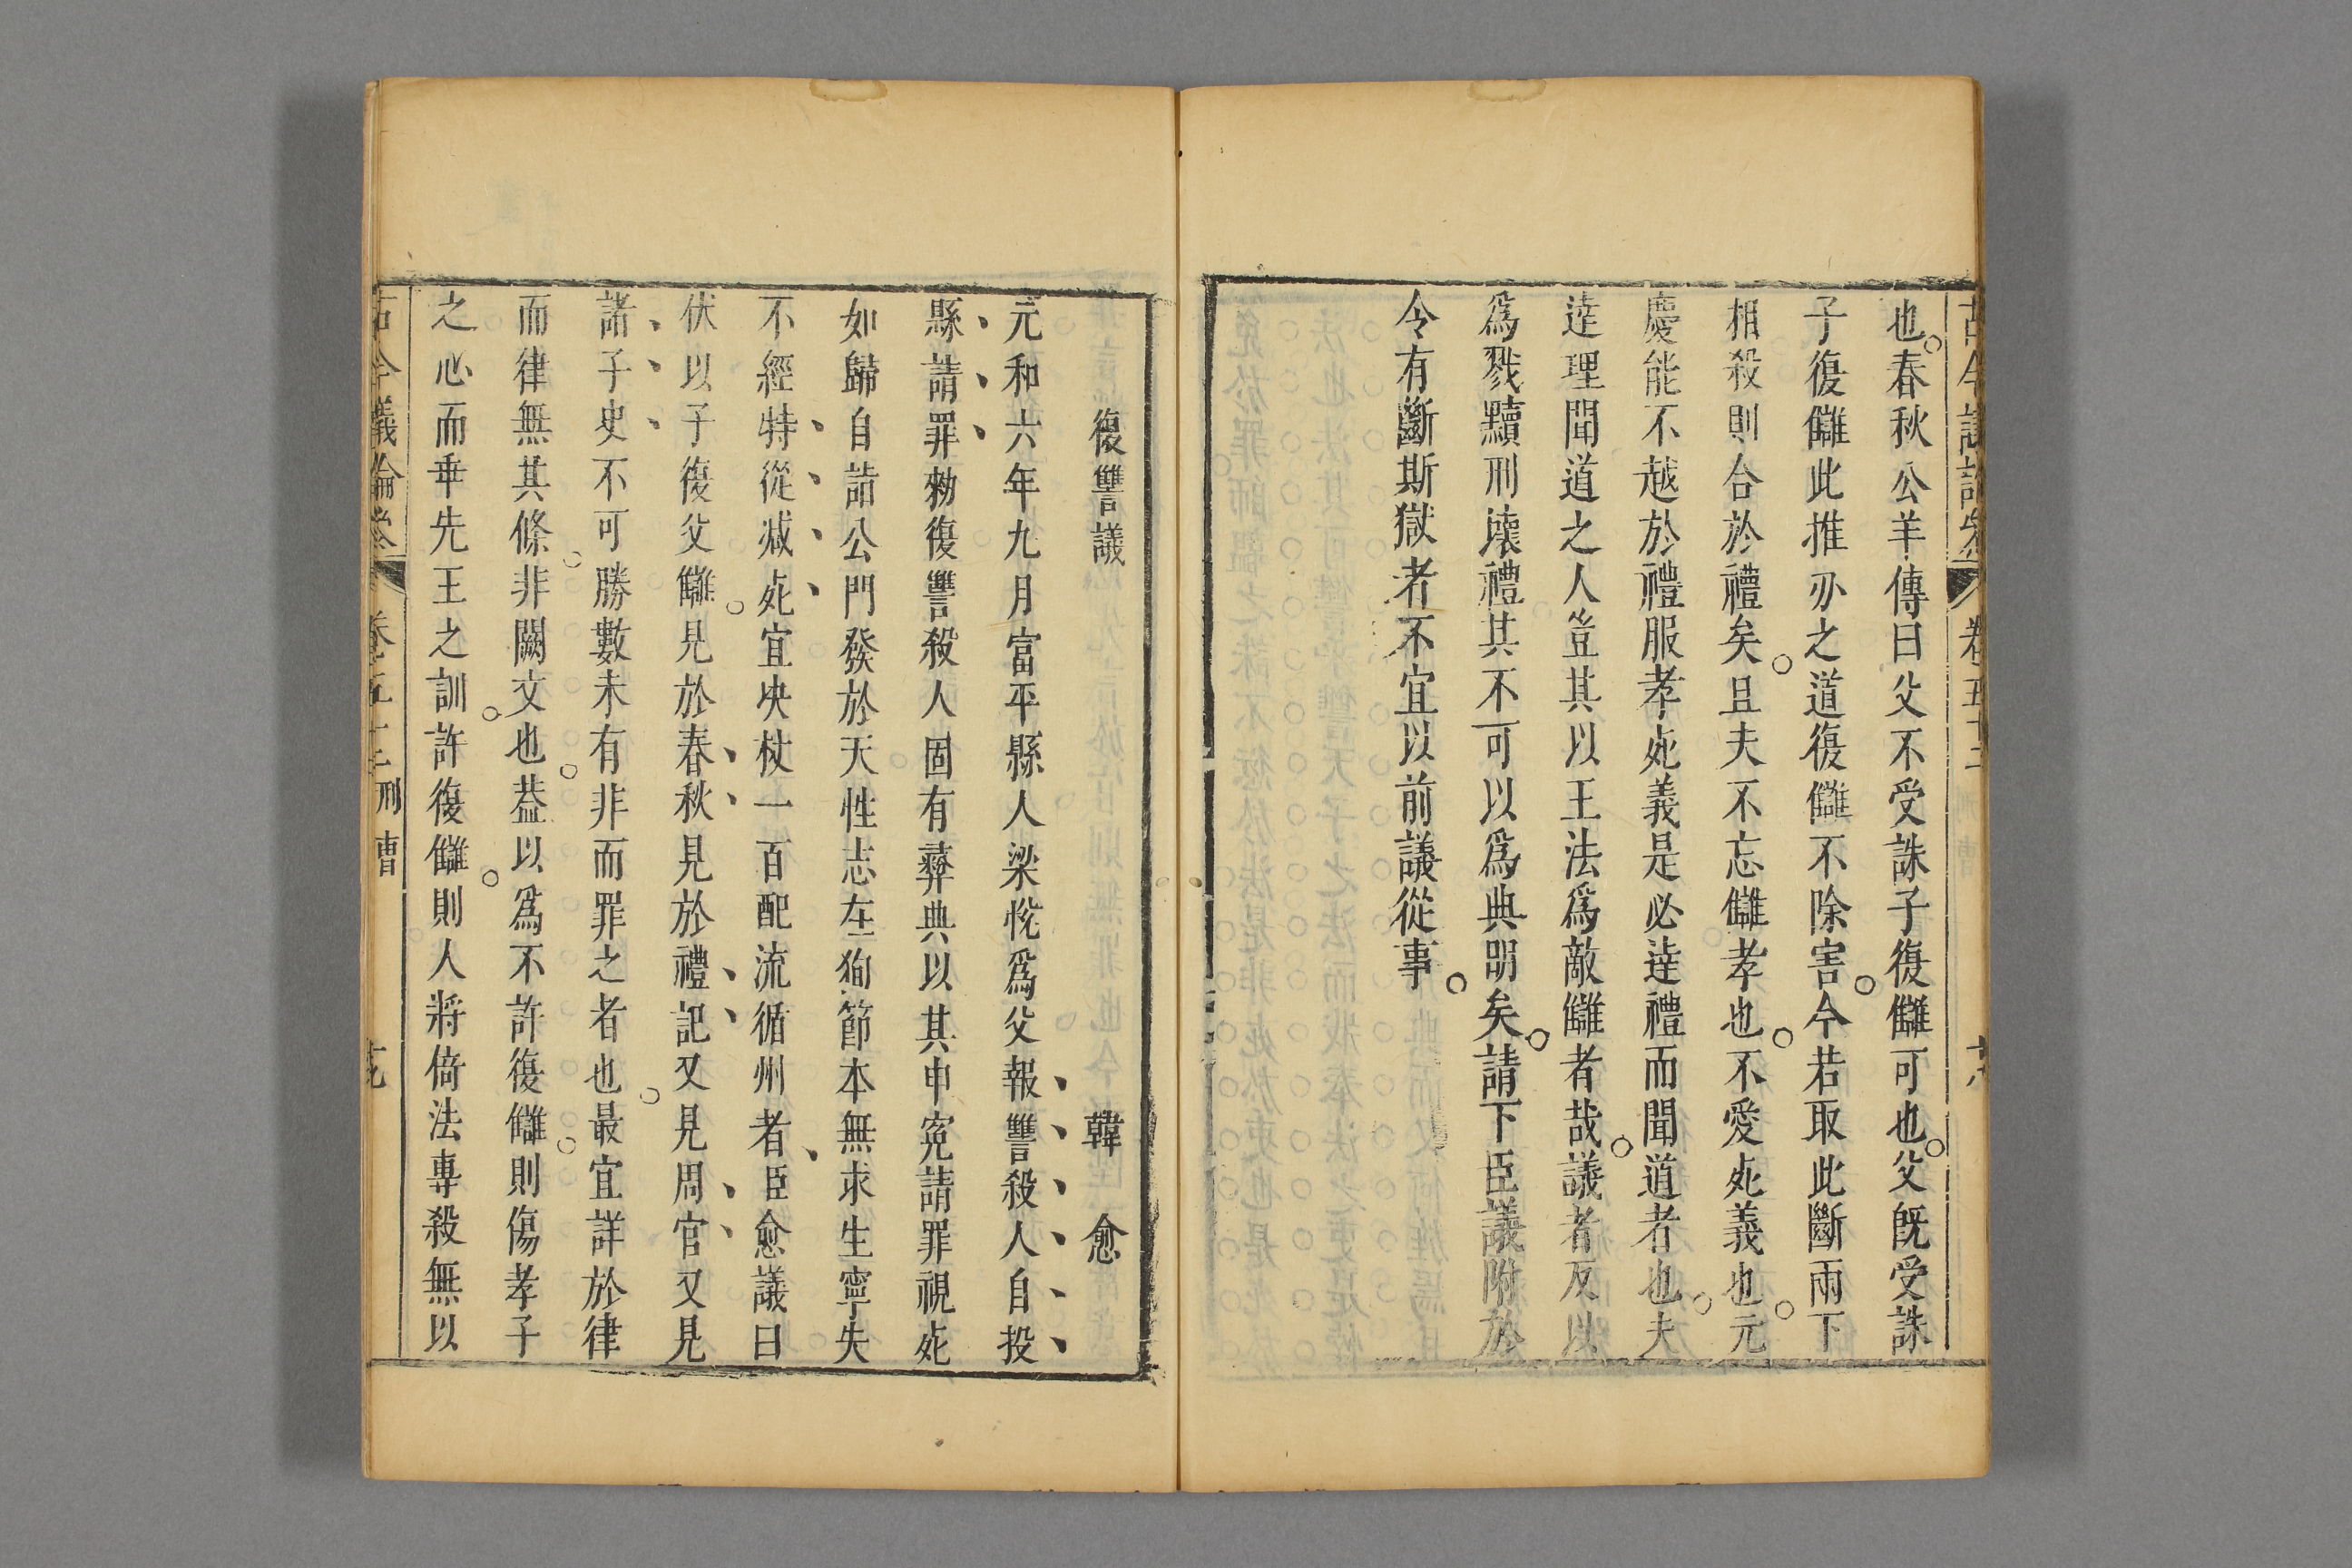 古今議論參 卷五十三
也春秋公羊傳曰父不受誅子復讎可也父旣受誅
子復讎此推刃之道復讎不除害今若取此斷兩下
相殺則合於禮矣且夫不忘讎孝也不愛死義也元
慶能不越於禮服孝死義是必達禮而聞道者也夫
達理聞道之人豈其以王法爲敵讎者哉議者反以
爲戮黷刑壞禮其不可以爲典明矣請下臣議附於
令有斷斯獄者不宜以前議從事
復讐議 韓愈
元和六年九月富平縣人梁悅爲父報讐殺人自投
縣請罪勑復讐殺人固有彝典以其申寃請罪視死
如歸自詣公門發於天性志在狥節本無求生寧失
不經特從減死宜决杖一百配流循州者臣愈議曰
伏以子復父讎見於春秋見於禮記又見周官又見
諸子史不可勝數未有非而罪之者也最宜詳於律
而律無其條非闕文也葢以爲不許復讎則傷孝子
之心而乖先王之訓許復讎則人將倚法專殺無以
古今議論參 卷五十三 刑曹